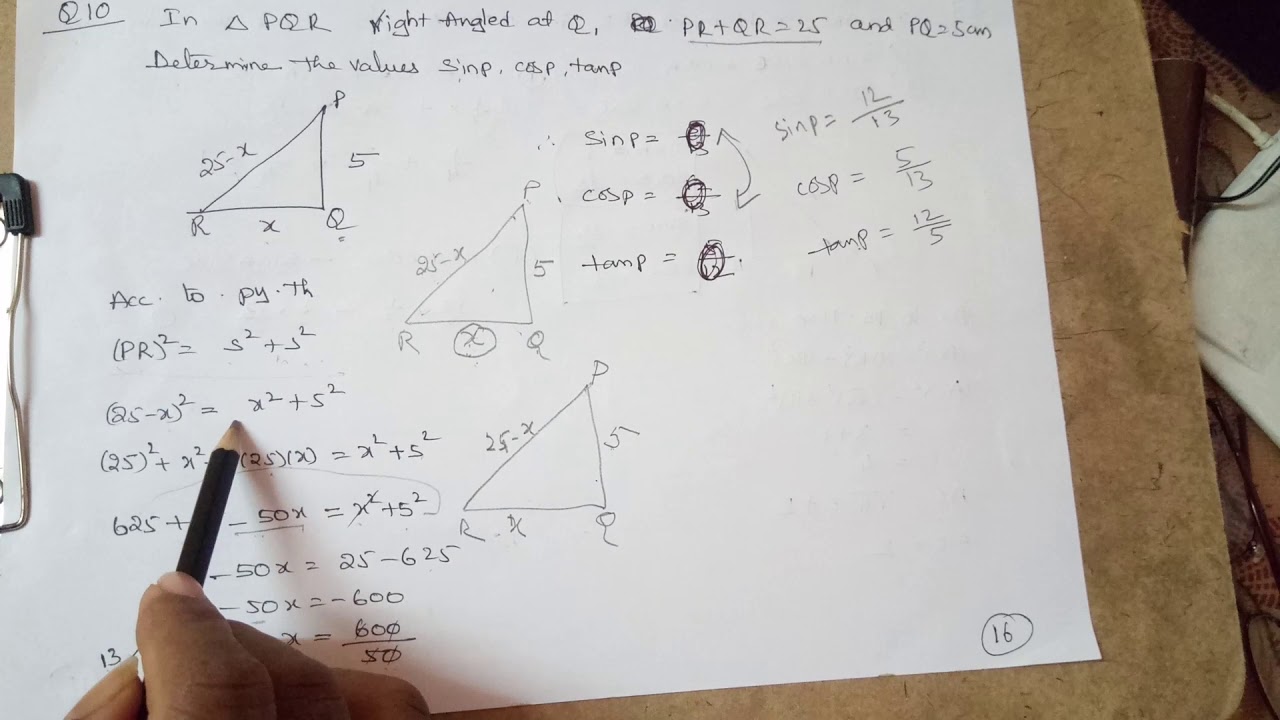 Q10 In △ PQR right Angled at Q, PR+QR=25 and PQ=5cm
Determine the values sinp, cosp, tanp
P
25-x
5
R
x
Q
∴ sinp =
cosp =
tanp =
sinp = 12/13
cosp = 5/13
tanp = 12/5
P
25-x
5
R
x
Q
Acc. to. py. th
(PR)² = 5²+5²
(25-x)² = x²+5²
(25)²+ x² (25)(x) = x²+5²
625+ - 50x = x²+5²
- 50x = 25-625
- 50x = -600
x = 600/50
13
P
25-x
5
R
x
Q
16